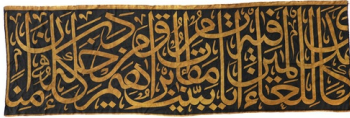 للعالمين فيه آيات بينات مقام إبراهيم ومن دخله كان آمنا